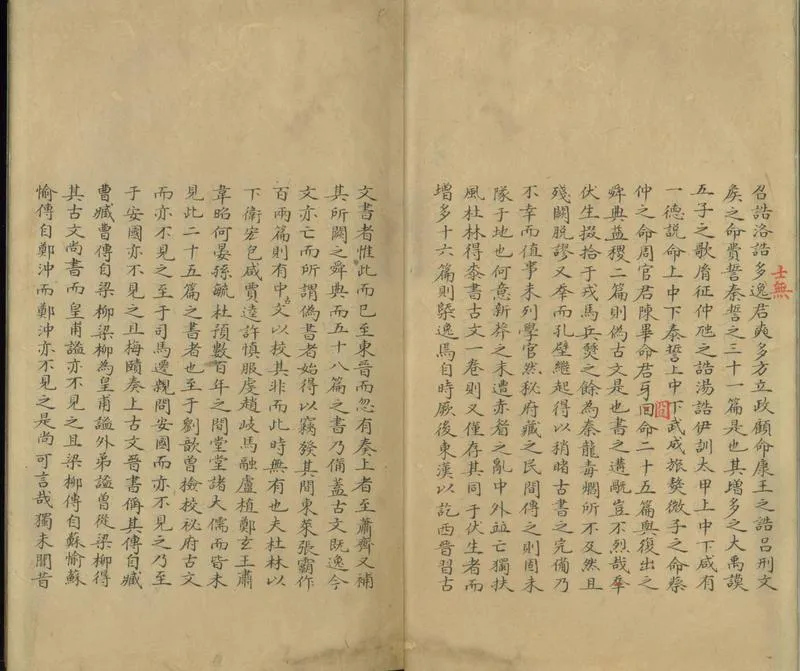 召誥洛誥多逸君奭多方立政顧命康王之誥呂刑文
士無
矦之命費誓秦誓之三十一篇是也其增多之大禹謨
五子之歌𦙍征仲虺之誥湯誥伊訓太甲上中下咸有
一德說命上中下泰誓上中下武成旅獒微子之命蔡
仲之命周官君陳畢命君牙囘命二十五篇與復出之
冏
舜典益稷二篇則偽古文是也書之遭戹豈不烈哉夲
伏生掇拾于戎馬兵燹之餘為秦龍毒爛所不及然且
殘闕脫謬又夲而孔壁繼起得以稍睹古書之完備乃
不幸而值事未列學官然秘府藏之民間傳之則固未
隊于地也何意新莽之末遭赤眉之亂中外並亡獨扶
風杜林得桼書古文一卷則又僅存其同于伏生者而
增多十六篇則槩逸焉自時厥後東漢以訖西晉習古
文書者惟此而已至東晉而忽有奏上者至蕭齊又補
其所闕之舜典而五十八篇之書乃備蓋古文既逸今
文亦亡而所謂偽書者始得以竊發其間東萊張霸作
百兩篇則有中古文以校其非而此時無有也夫杜林以
下衛宏包咸賈逵許慎服虔趙岐馬融盧植鄭玄王肅
韋昭何晏孫毓杜預數百年之間堂堂諸大儒而皆未
見此二十五篇之書者也至于劉歆曾撿校祕府古文
而亦不見之至于司馬遷親問安國而亦不見之乃至
于安國亦不見之且梅賾奏上古文晉書偁其傳自臧
曹臧曹傳自梁柳梁柳為皇甫謐外弟謐曾從梁柳得
其古文尚書而皇甫謐亦不見之且梁柳傳自蘇愉蘇
愉傳自鄭沖而鄭沖亦不見之是尚可言哉獨未聞昔